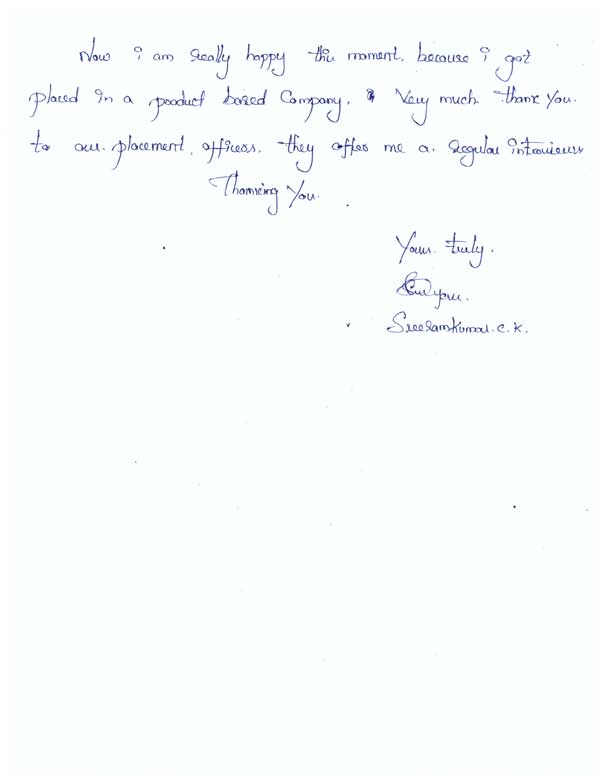 Now i am really happy this moment, because i got
placed in a product based Company. Very much thank you.
to our placement officers. they offer me a regular interview
Thanking You.
Your truly.
Sreeramkumar.C.K.